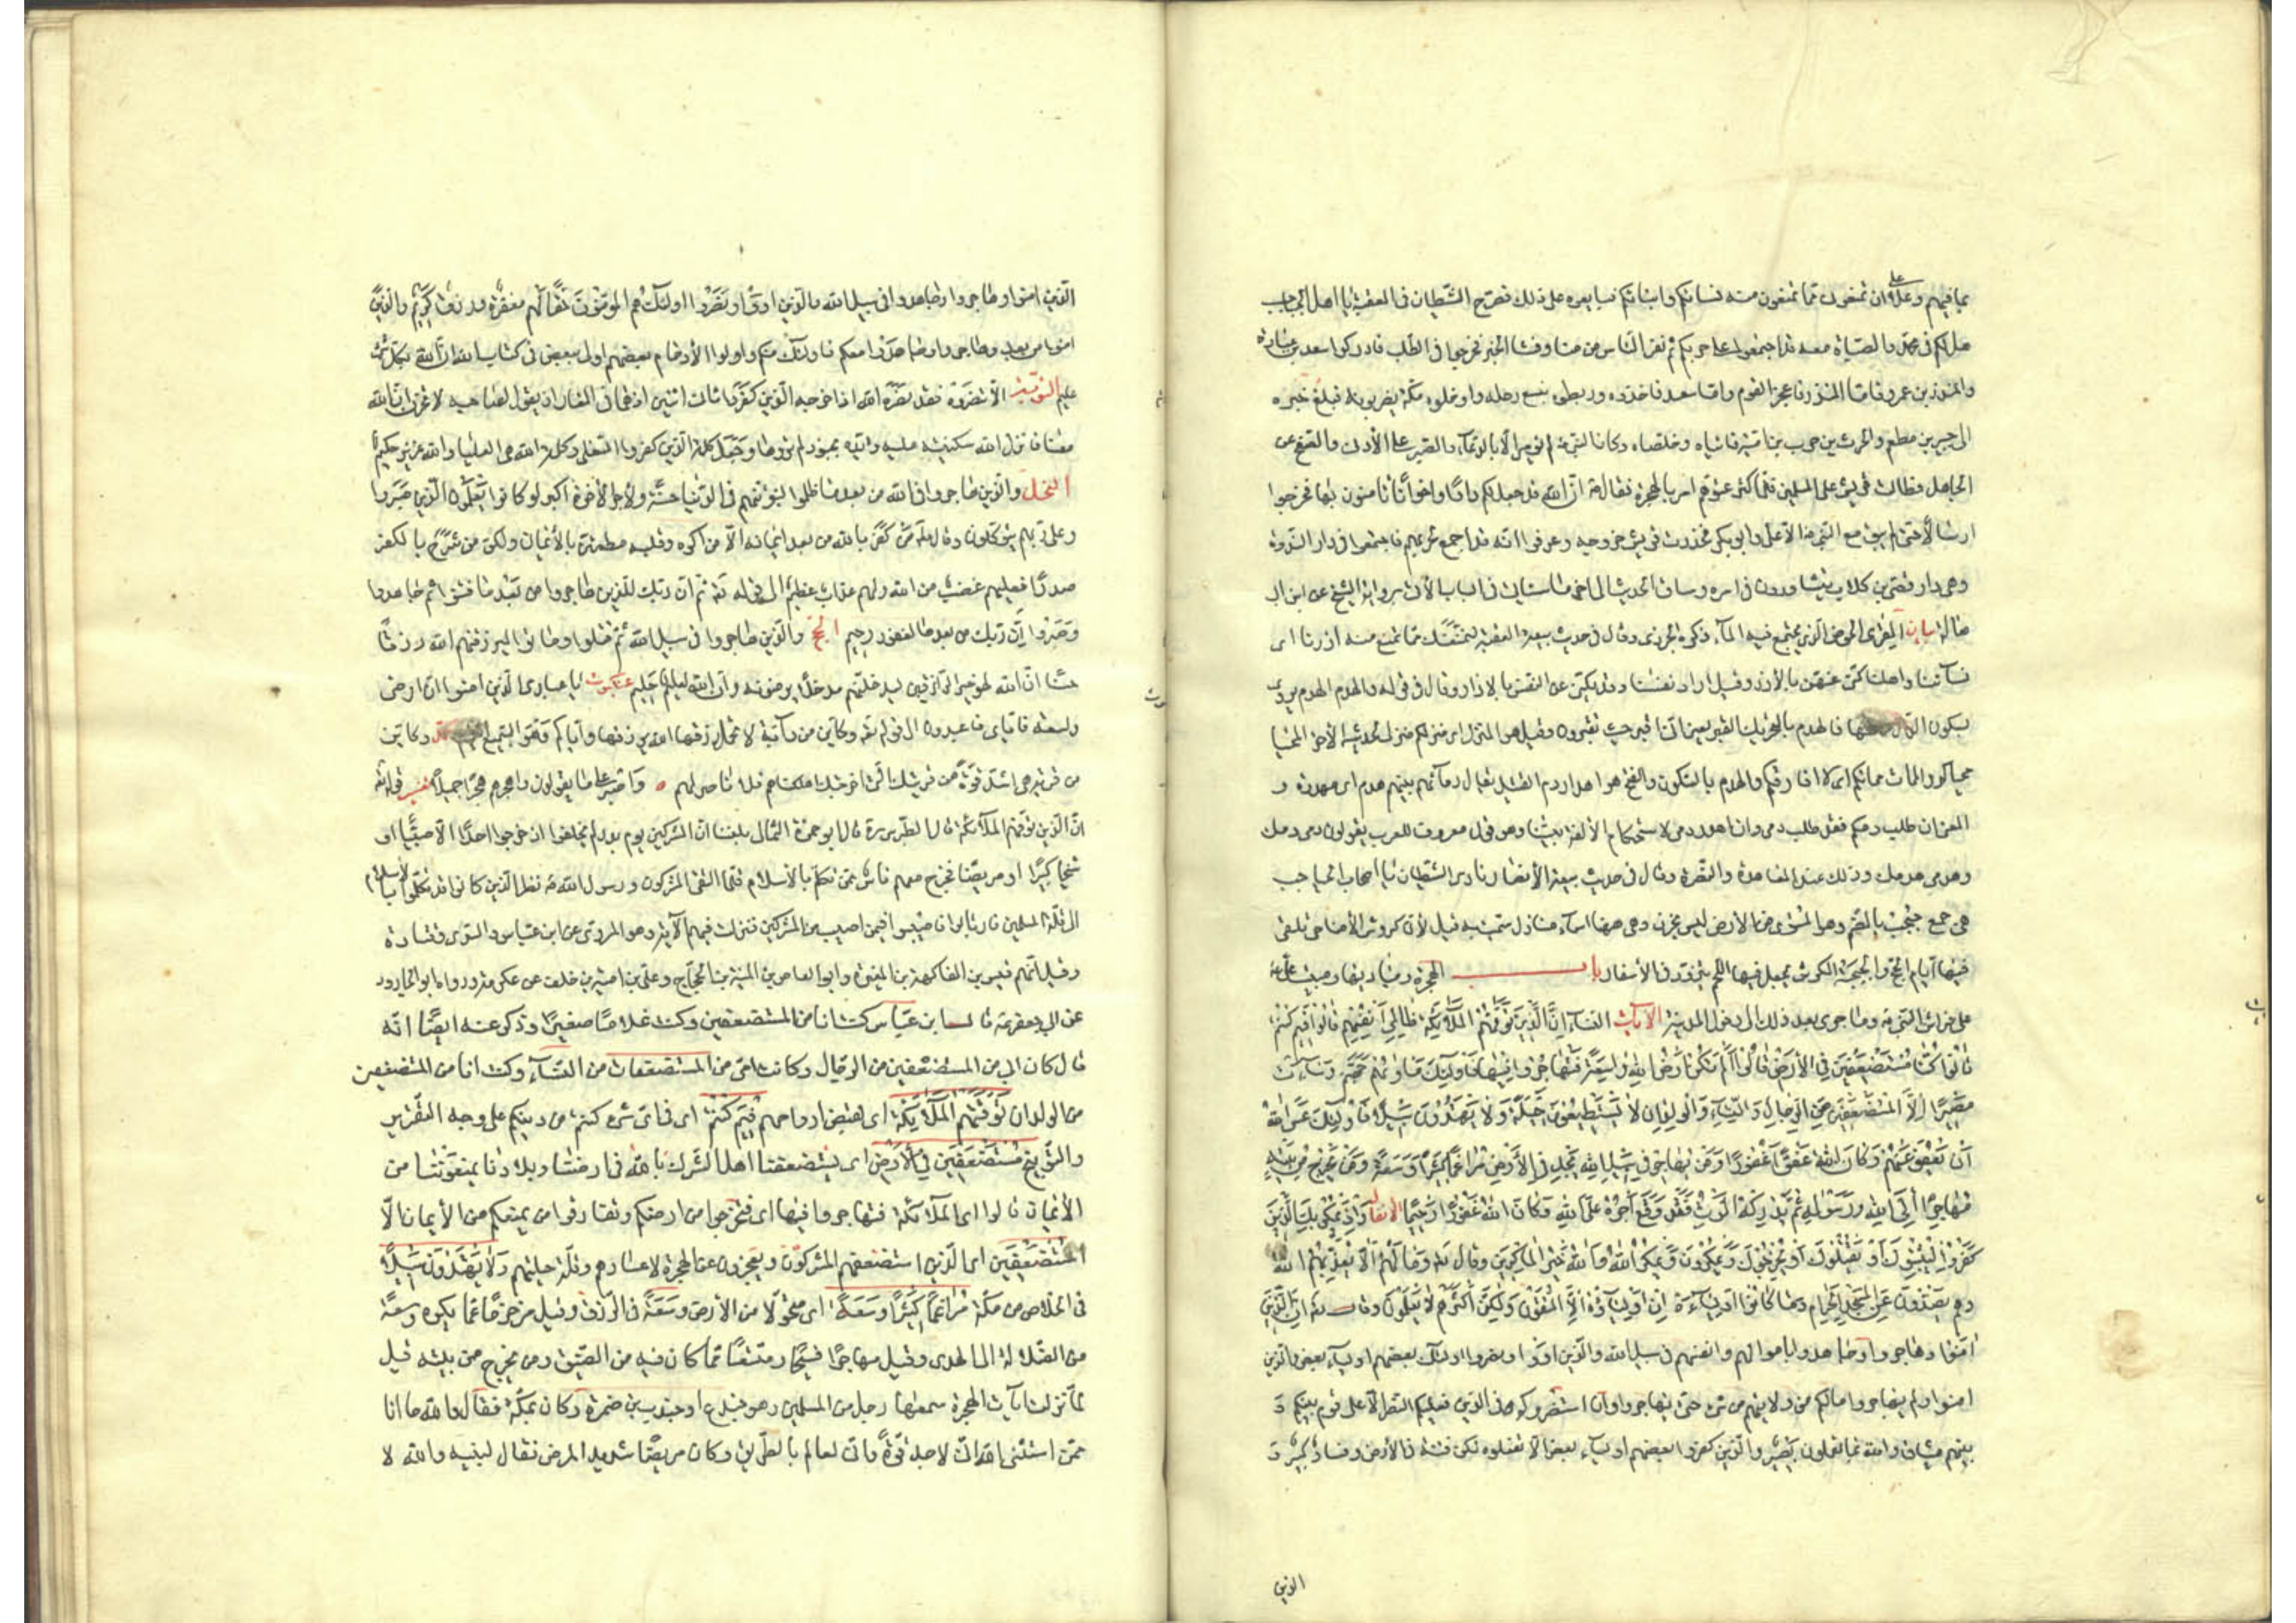 بما فيهم وعلى ان تمنعوني مما تمنعون منه نساءكم وابناءكم فبايعوه على ذلك فصرخ الشيطان في العقبة يا اهل الجباجب
هل لكم في محمد والصباة معه قد اجتمعوا على حربكم ثم نفر الناس من منا وفشا الخبر فخرجوا في الطلب فادركوا سعد بن عبادة
والمنذر بن عمرو فاما المنذر فاعجز القوم واما سعد فاخذوه وربطوه بنسع رحله وادخلوه مكة يضربونه فبلغ خبره
الى جبير بن مطعم والحرث بن حرب بن امية فاتياه وخلصاه وكان النبي لم يؤمر الا بالدعاء والصبر على الاذى والصفح عن
الجاهل فطالت قريش على المسلمين فلما كثر عتوهم امر بالهجرة فقال ان الله قد جعل لكم دارا واخوانا تامنون بها فخرجوا
ارسالا حتى لم يبق مع النبي الا علي وابو بكر فحذرت قريش خروجه وعرفوا انه قد اجمع لحربهم فاجتمعوا في دار الندوة
وهي دار قصي بن كلاب يتشاورون في امره وساق الحديث الى اخر ما سياتي في الباب الآتي برواية الشيخ عن ابن ابي
هالة بيان المقرى الحوض الذي يجتمع فيه الماء ذكره الجزري وقال في حديث بيعة العقبة لنمنعنك مما نمنع منه ازرنا اي
نساءنا واهلنا كنى عنهن بالازر وقيل اراد نفسنا وقد يكنى عن النفس بالازار وقال في قوله والهدم الهدم يروى
بسكون الدال وفتحها فالهدم بالتحريك القبر يعني انا نقبر حيث تقبرون وقيل هو المنزل اي منزلكم منزلي كحديثه الآخر المحيا
محياكم والممات مماتكم اي لا افارقكم والهدم بالسكون والفتح هو اهدار دم القتيل يقال دماؤهم بينهم هدم اي مهدرة و
المعنى ان طلب دمكم فقد طلب دمي وان اهدر دمي لاستحكام الالفة بيننا وهو قول معروف للعرب يقولون دمي دمك
وهدمي هدمك وذلك عند المعاهدة والنصرة وقال في حديث بيعة الانصار نادى الشيطان يا اصحاب الجباجب
هي جمع جبجب بالضم وهو المستوي من الارض ليس بحزن وهي ههنا اسماء منازل سميت به قيل لان كروش الاضاحي تلقى
فيها ايام الحج والجبجبة الكرش يجعل فيها اللحم يتزود في الاسفار باب الهجرة ومباديها ومبيت علي
على فراش النبي وما جرى بعد ذلك الى دخول المدينة الآيات النساء ان الذين توفيهم الملائكة ظالمي انفسهم قالوا فيم كنتم
قالوا كنا مستضعفين في الارض قالوا الم تكن ارض الله واسعة فتهاجروا فيها فاولئك ماويهم جهنم وساءت
مصيرا الا المستضعفين من الرجال والنساء والولدان لا يستطيعون حيلة ولا يهتدون سبيلا فاولئك عسى الله
ان يعفو عنهم وكان الله عفوا غفورا ومن يهاجر في سبيل الله يجد في الارض مراغما كثيرا وسعة ومن يخرج من بيته
مهاجرا الى الله ورسوله ثم يدركه الموت فقد وقع اجره على الله وكان الله غفورا رحيما الانفال واذ يمكر بك الذين
كفروا ليثبتوك او يقتلوك او يخرجوك ويمكرون ويمكر الله والله خير الماكرين وقال وما لهم الا يعذبهم الله
وهم يصدون عن المسجد الحرام وما كانوا اولياءه ان اولياؤه الا المتقون ولكن اكثرهم لا يعلمون وقال ان الذين
آمنوا وهاجروا وجاهدوا باموالهم وانفسهم في سبيل الله والذين آووا ونصروا اولئك بعضهم اولياء بعض والذين
امنوا ولم يهاجروا مالكم من ولايتهم من شيء حتى يهاجروا وان استنصروكم في الدين فعليكم النصر الا على قوم بينكم و
بينهم ميثاق والله بما تعملون بصير والذين كفروا بعضهم اولياء بعض الا تفعلوه تكن فتنة في الارض وفساد كبير و
الذين
الذين امنوا وهاجروا وجاهدوا في سبيل الله والذين اووا ونصروا اولئك هم المؤمنون حقا لهم مغفرة ورزق كريم والذين
امنوا من بعد وهاجروا وجاهدوا معكم فاولئك منكم واولوا الارحام بعضهم اولى ببعض في كتاب الله ان الله بكل شيء
عليم التوبة الا تنصروه فقد نصره الله اذ اخرجه الذين كفروا ثاني اثنين اذ هما في الغار اذ يقول لصاحبه لا تحزن ان الله
معنا فانزل الله سكينته عليه وايده بجنود لم تروها وجعل كلمة الذين كفروا السفلى وكلمة الله هي العليا والله عزيز حكيم
النحل والذين هاجروا في الله من بعد ما ظلموا لنبوئنهم في الدنيا حسنة ولاجر الآخرة اكبر لو كانوا يعلمون الذين صبروا
وعلى ربهم يتوكلون وقال من كفر بالله من بعد ايمانه الا من اكره وقلبه مطمئن بالايمان ولكن من شرح بالكفر
صدرا فعليهم غضب من الله ولهم عذاب عظيم الى قوله ثم ان ربك للذين هاجروا من بعد ما فتنوا ثم جاهدوا
وصبروا ان ربك من بعدها لغفور رحيم الحج والذين هاجروا في سبيل الله ثم قتلوا او ماتوا ليرزقنهم الله رزقا
حسنا ان الله لهو خير الرازقين ليدخلنهم مدخلا يرضونه وان الله لعليم حليم عنكبوت يا عبادي الذين امنوا ان ارضي
واسعة فاياي فاعبدون الى قوله وكاين من دابة لا تحمل رزقها الله يرزقها واياكم وهو السميع العليم وكاين
من قرية هي اشد قوة من قريتك التي اخرجتك اهلكناهم فلا ناصر لهم واصبر على ما يقولون واهجرهم هجرا جميلا تفسير قوله
ان الذين توفيهم الملائكة قال الطبرسي قال ابو حمزة الثمالي بلغنا ان المشركين يوم بدر لم يخلفوا اذ خرجوا احدا الا صبيا او
شيخا كبيرا او مريضا فخرج معهم ناس ممن تكلم بالاسلام فلما التقى المشركون ورسول الله نظر الذين كانوا قد تكلموا بالاسلام
الى قلة المسلمين فارتابوا فاصيبوا فيمن اصيب من المشركين فنزلت فيهم الآية وهو المروي عن ابن عباس والسدي وقتادة
وقيل انهم قيس بن الفاكهة بن المغيرة وابو العاص بن المنية بن الحجاج وعلي بن امية بن خلف عن عكرمة ورواه ابو الجارود
عن ابي جعفر قال ابن عباس كنت انا من المستضعفين وكنت غلاما صغيرا وذكر عنه ايضا انه
قال كان ابي من المستضعفين من الرجال وكانت امي من المستضعفات من النساء وكنت انا من المستضعفين
من الولدان توفيهم الملائكة اي تقبض ارواحهم فيم كنتم اي في اي شيء كنتم من دينكم على وجه التقرير
والتوبيخ مستضعفين في الارض اي يستضعفنا اهل الشرك بالله في ارضنا وبلادنا يمنعوننا من
الايمان قالوا اي الملائكة فتهاجروا فيها اي فتخرجوا من ارضكم وتفارقوا من يمنعكم من الايمان الا
المستضعفين اي الذين استضعفهم المشركون ويعجزون عن الهجرة لاعسارهم وقلة حيلتهم ولا يهتدون سبيلا
في الخلاص من مكة مراغما كثيرا وسعة اي متحولا من الارض وسعة في الرزق وقيل مزحزحا عما يكره وسعة
من الضلالة الى الهدى وقيل مهاجرا فسيحا ومتسعا مما كان فيه من الضيق ومن يخرج من بيته قيل
لما نزلت آيات الهجرة سمعها رجل من المسلمين وهو جندع او جندب بن ضمرة وكان بمكة فقال والله ما انا
ممن استثنى الله اني لاجد قوة واني لعالم بالطريق وكان مريضا شديد المرض فقال لبنيه والله لا